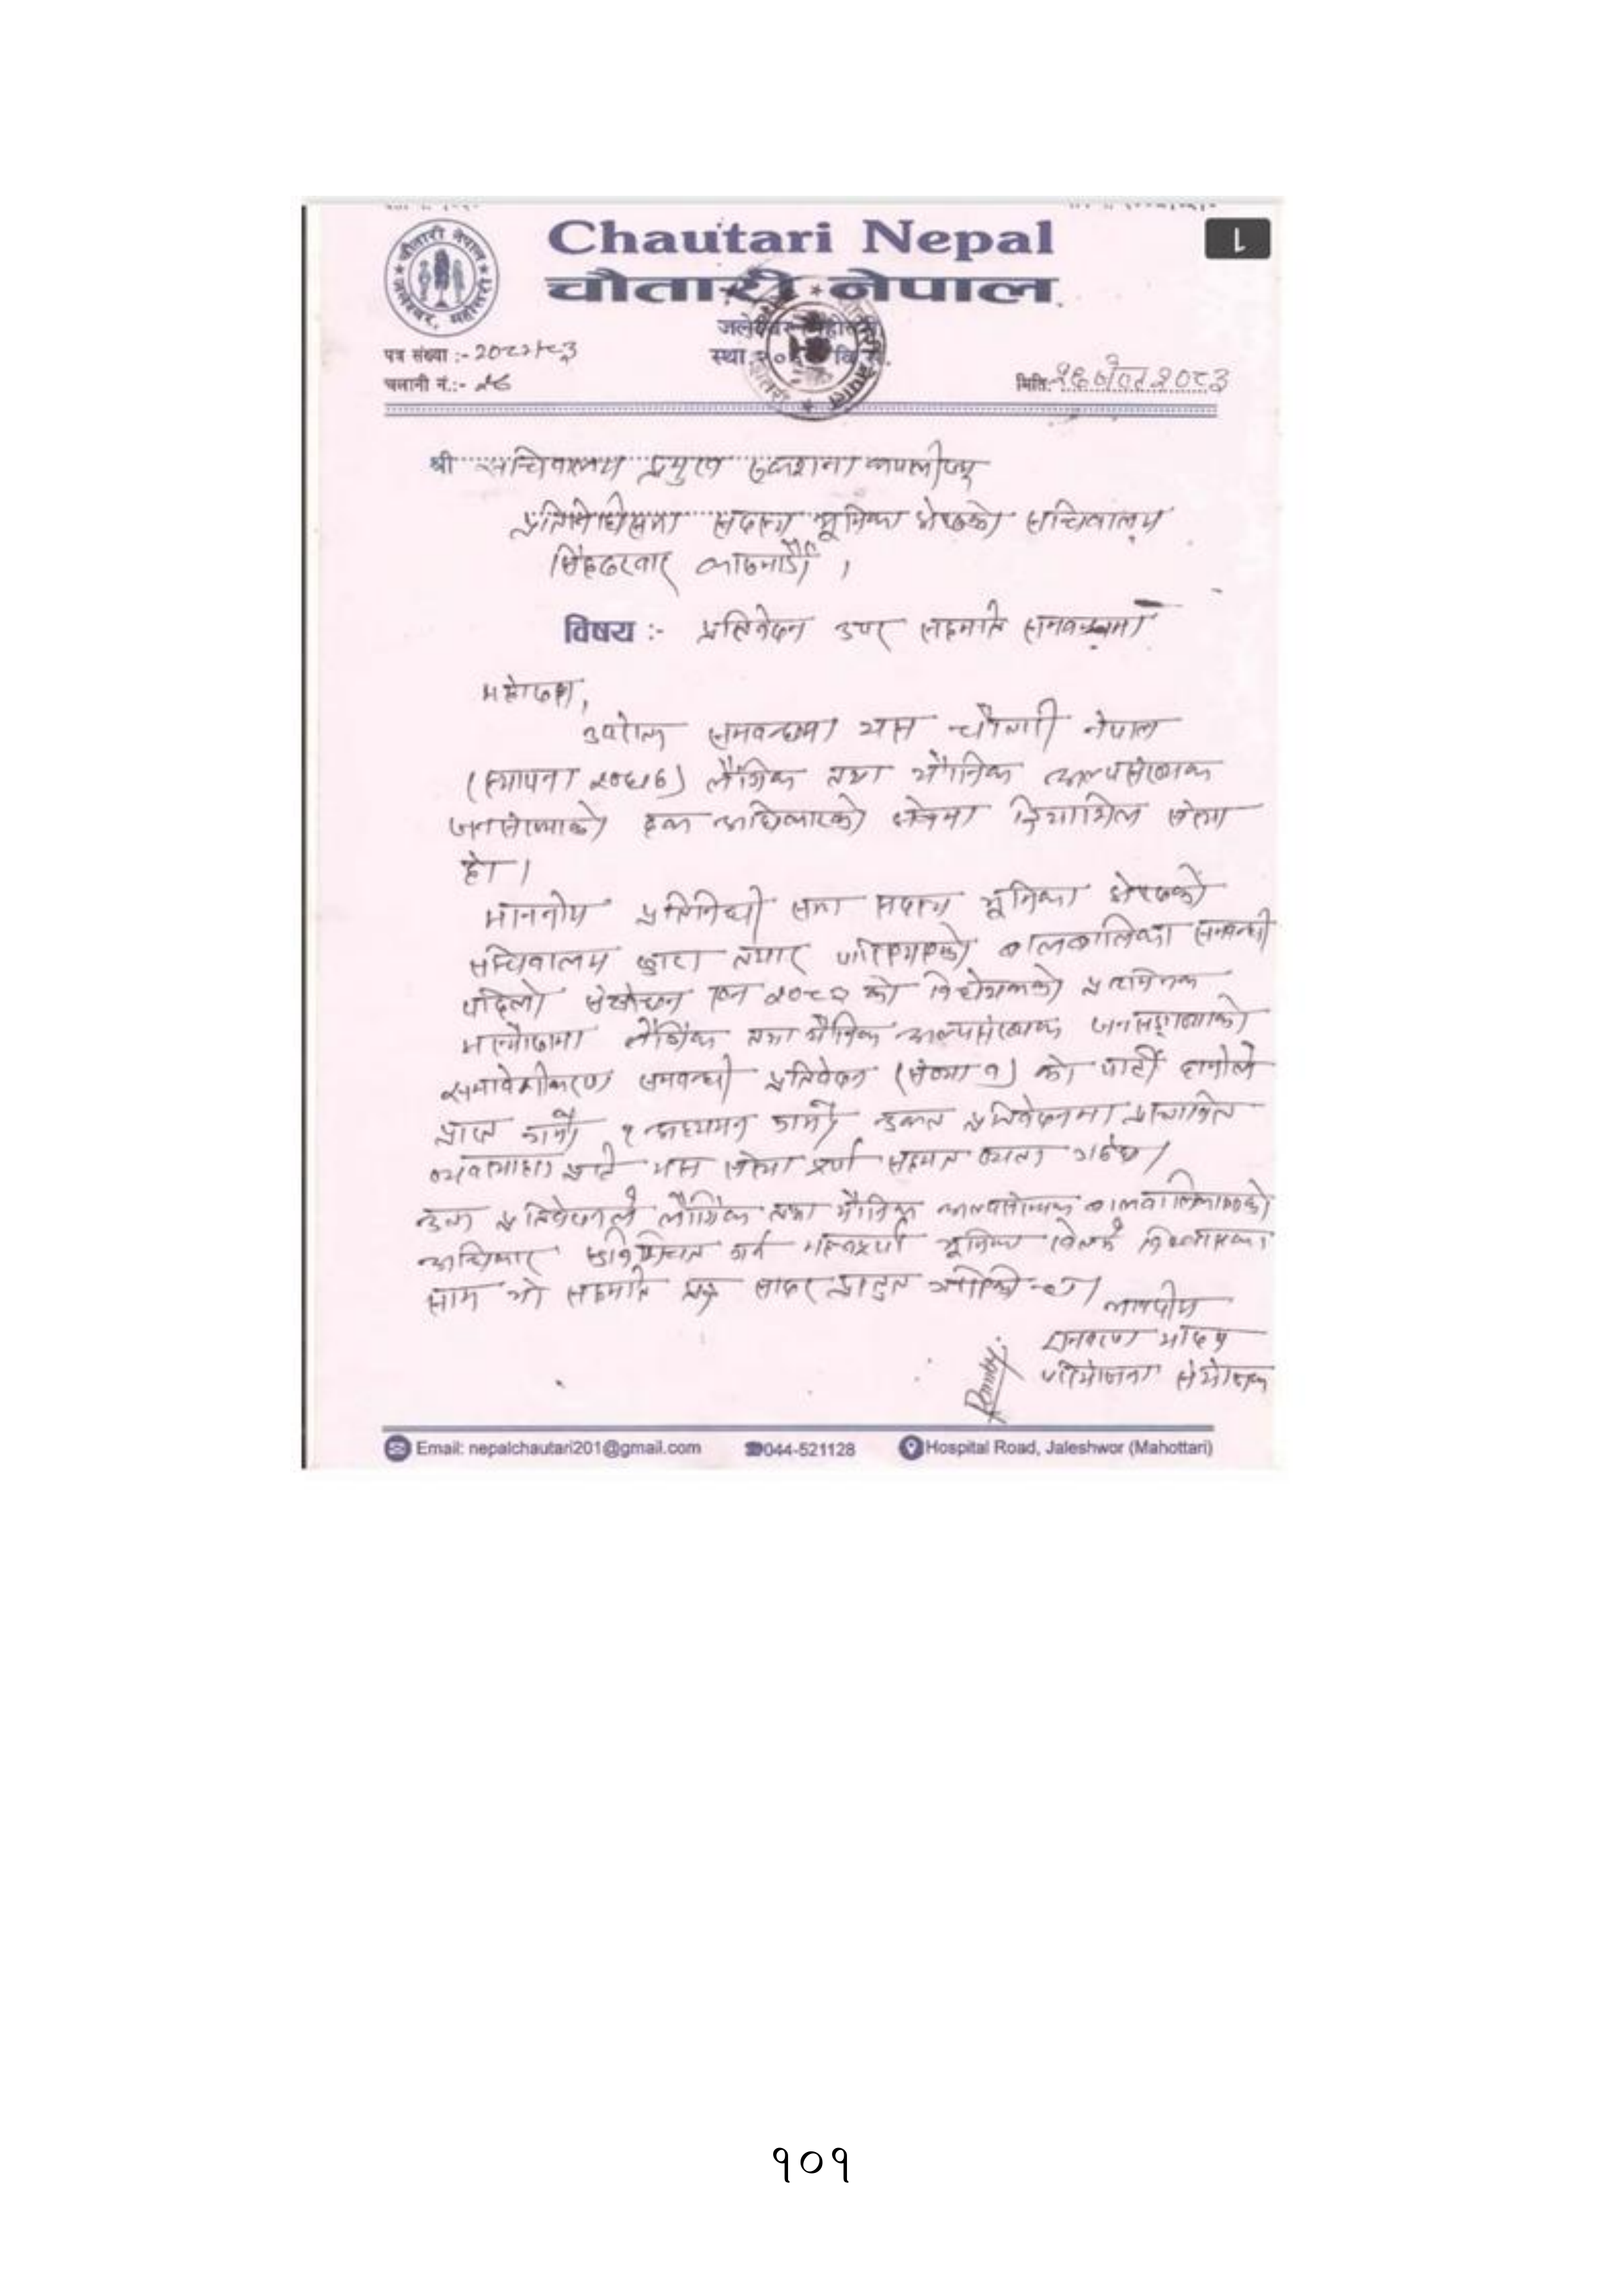 Chautari Nepal
चौतारी नेपाल
चौतारी नेपाल
जलेश्वर, महोत्तरी
जलेश्वर महोत्तरी
स्था. वि.
पत्र संख्या :- २०८२/८३
चलानी नं.:-
मिति: २०८३
श्री सचिवालय प्रमुख
प्रतिनिधिसभा सदस्य भूमिका श्रेष्ठको सचिवालय
सिंहदरवार काठमाडौँ ।
विषय :- प्रतिवेदन उपर सहमति समवन्धमा
महोदय,
उपरोक्त समवन्धमा यस चौतारी नेपाल
(स्थापना) लैंगिक तथा यौनिक अल्पसंख्यक
जनसंख्याको हक अधिकारको क्षेत्रमा क्रियाशिल संस्था
हो ।
माननीय प्रतिनिधी सभा सदस्य भूमिका श्रेष्ठको
सचिवालय द्वारा तयार पारिएको बालबालिका समवन्धी
पहिलो संशोधन को विधेयकको प्रारम्भिक
मस्यौदामा लैंगिक तथा यौनिक अल्पसंख्यक जनसङ्ख्याको
समावेशीकरण समवन्धी प्रतिवेदन (संख्या १) को हामीले
प्राप्त अध्ययन उक्त प्रतिवेदनमा प्रस्तावित
प्रति यस संस्था पूर्ण सहमत व्यक्त गर्दछ ।
उक्त प्रतिवेदनले लैंगिक तथा यौनिक अल्पसंख्यक बालबालिकाहरुको
अधिकार सुनिश्चित गर्न महत्वपूर्ण भूमिका खेल्ने विश्वासका
साथ यो सहमति पत्र सादर प्रस्तुत
भवदीय
यादव
परियोजना संयोजक
Email: nepalchautari201@gmail.com
044-521128
Hospital Road, Jaleshwor (Mahottari)
१०१